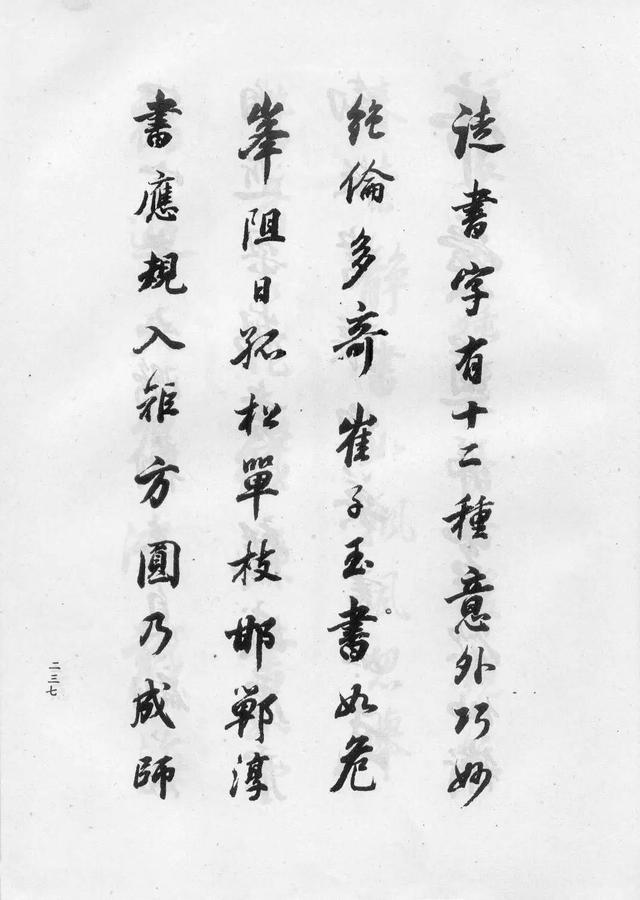 書字有十二種意外巧妙
絶倫多奇崔子玉書如危
峯阻日孤松單枝邯鄲淳
書應規入矩方圓乃成師
二三七